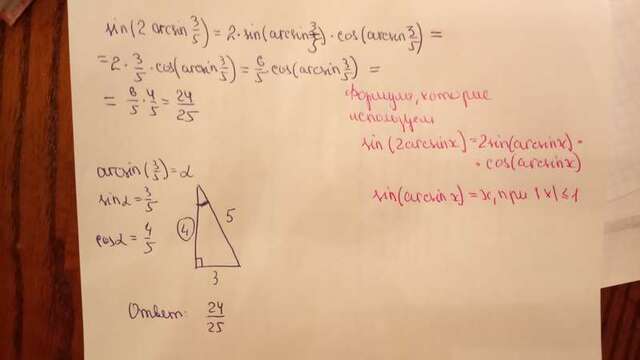 sin(2 arcsin 3/5) = 2·sin(arcsin 3/5)·cos(arcsin 3/5) =
= 2 · 3/5 · cos(arcsin 3/5) = 6/5 · cos(arcsin 3/5) =
= 6/5 · 4/5 = 24/25
Формулы, которые
используем
sin(2arcsinx) = 2sin(arcsinx) ·
· cos(arcsinx)
sin(arcsinx) = x, при |x| ≤ 1
arcsin(3/5) = α
sinα = 3/5
cosα = 4/5
4
5
3
Ответ: 24/25